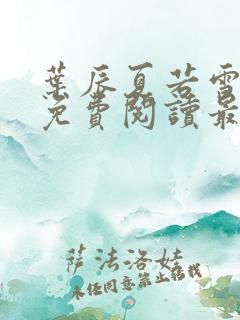 葉辰夏若雪
免費閱讀最
薩法洛娃
未经同意禁止转载